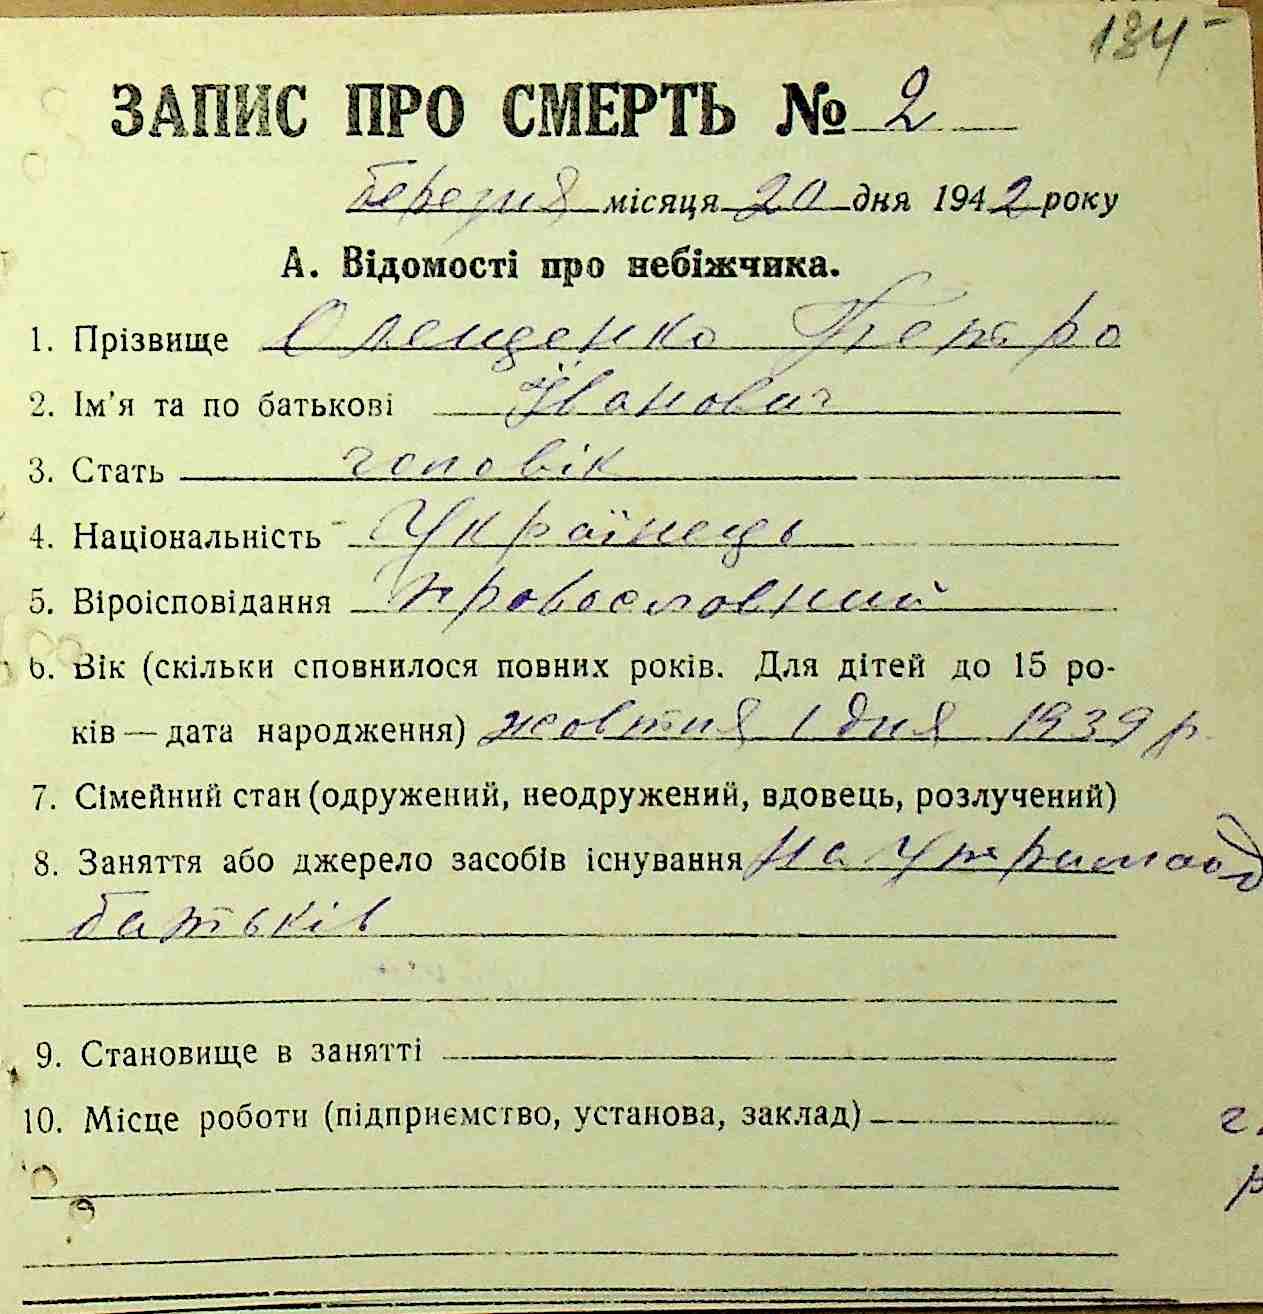 184
ЗАПИС ПРО СМЕРТЬ № 2
березня місяця 20 дня 1942 року
А. Відомості про небіжчика.
1. Прізвище Олещенко Петро
2. Ім'я та по батькові Іванович
3. Стать чоловік
4. Національність Українець
5. Віроісповідання православний
6. Вік (скільки сповнилося повних років. Для дітей до 15 ро-
ків — дата народження) жовтня 1 дня 1939 р.
7. Сімейний стан (одружений, неодружений, вдовець, розлучений)
8. Заняття або джерело засобів існування на
батьків
9. Становище в занятті
10. Місце роботи (підприємство, установа, заклад)